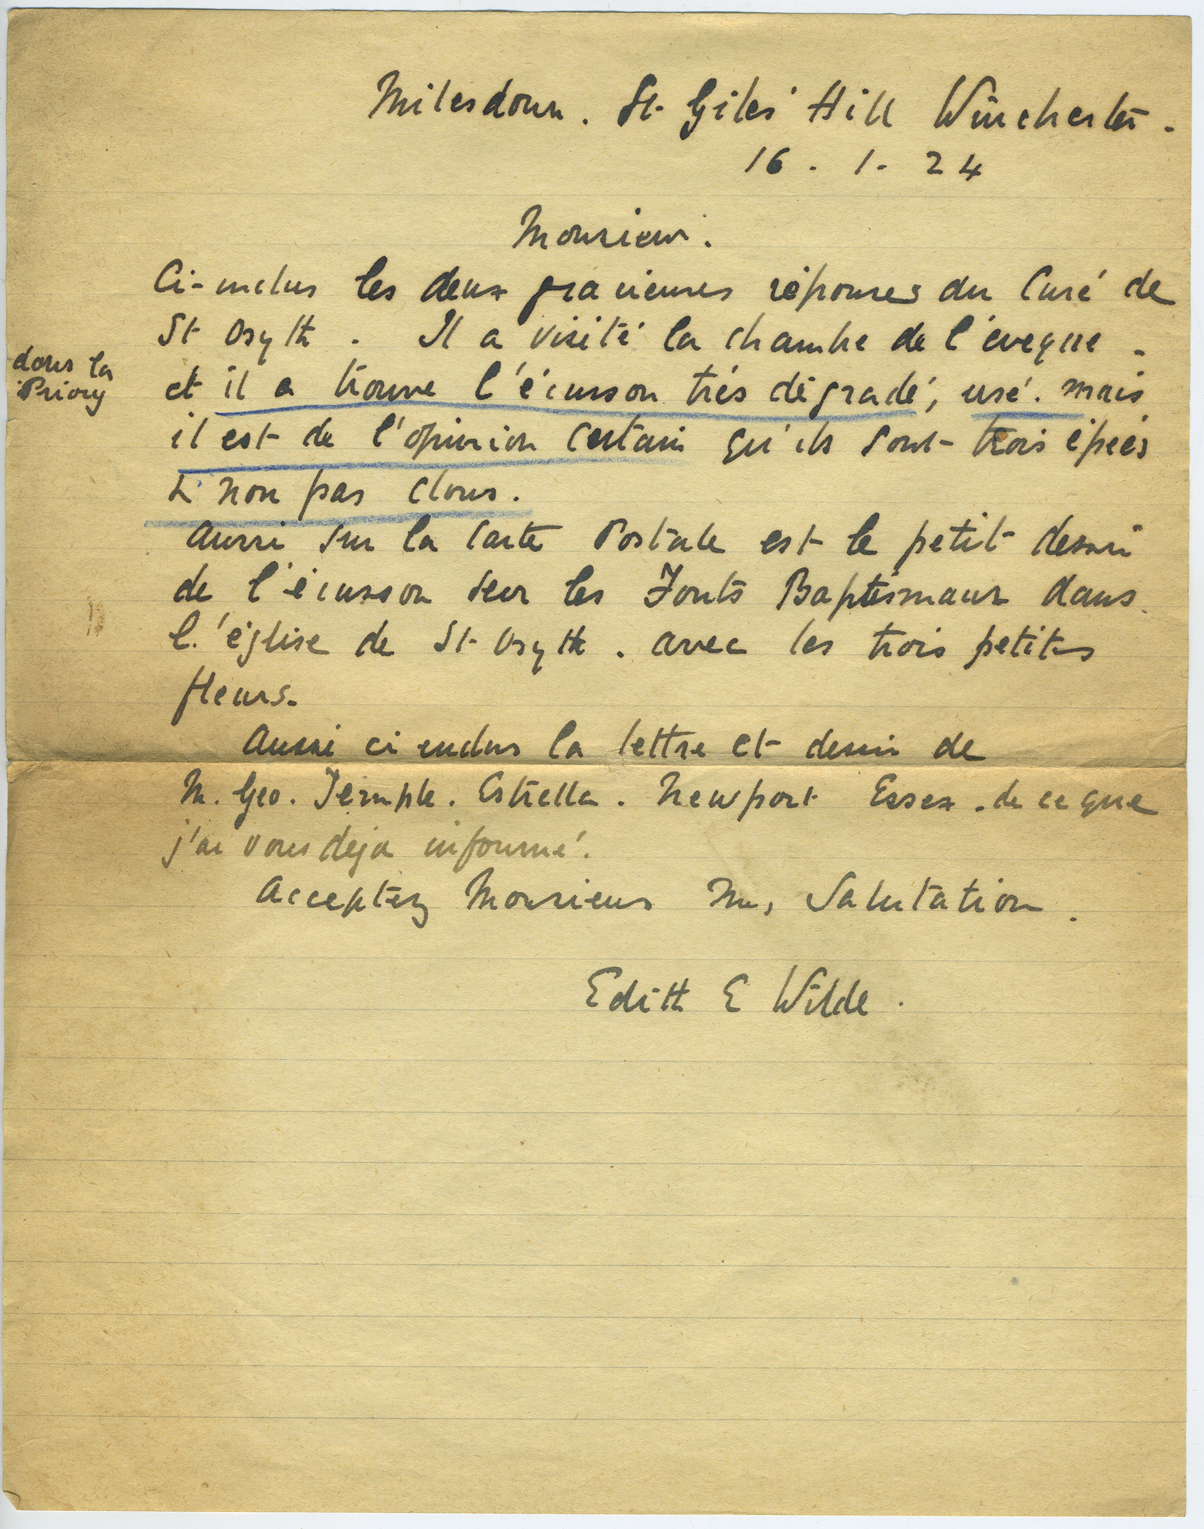 Milesdown. St Giles' Hill Winchester.
16. 1. 24
Monsieur.
Ci-inclus les deux gracieuses réponses du Curé de
St Osyth. Il a visité la chambre de l'éveque.
dans la
Priory
et il a trouve l'écusson trés dégradé, usé. mais
il est de l'opinion certain qu'ils sont trois épées
& non pas clous.
Aussi sur la Carte Postale est le petit dessin
de l'écusson sur les Fonts Baptismaux dans
l'église de St Osyth. avec les trois petits
fleurs.
Aussi ci inclus la lettre et dessin de
M. Geo. Temple. Estrella. Newport Essex. de ce que
j'ai vous deja informé.
Acceptez Monsieur mes Salutation.
Edith E Wilde.